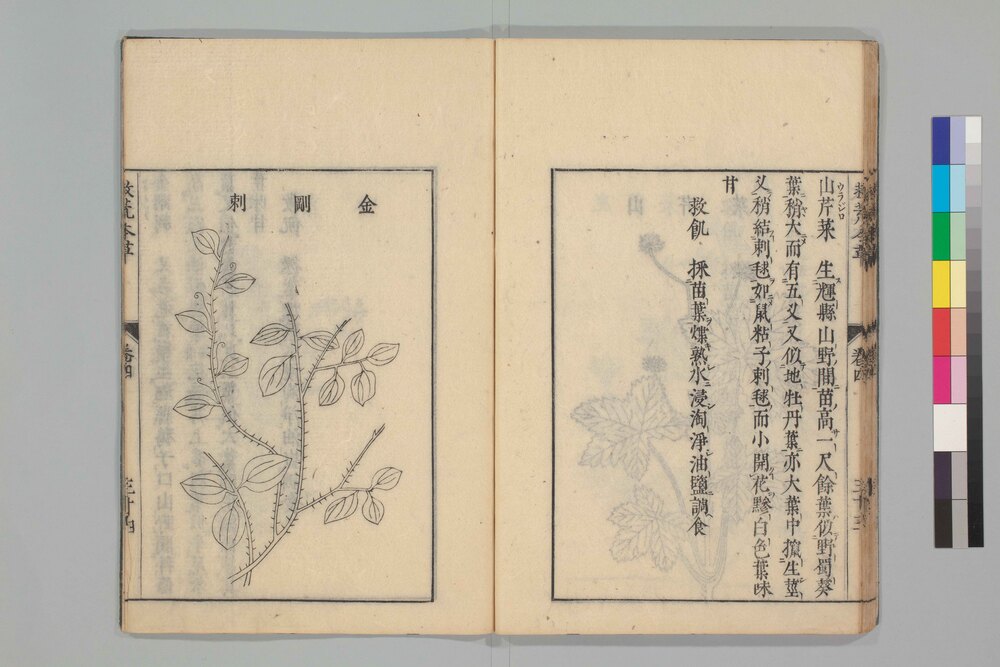 山芹菜 生輝縣山野間苗高一尺餘葉似野蜀葵
ウラジロ
葉稍大而有五叉又似地牡丹葉亦大葉中攛生莖
叉稍結刺毬如鼠粘子刺毬而小開花黲白色葉味
甘
救飢 採苗葉煠熟水浸淘淨油鹽調食
金剛刺
救荒本草
卷四
三十四